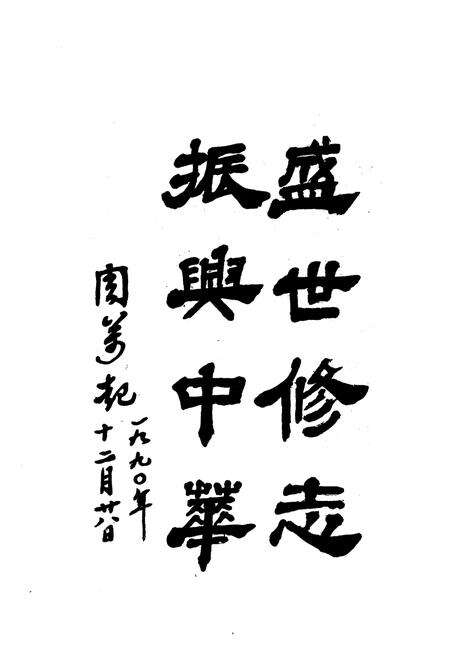 盛世修志
振興中華
一九九〇年
周萬起 十二月廿八日